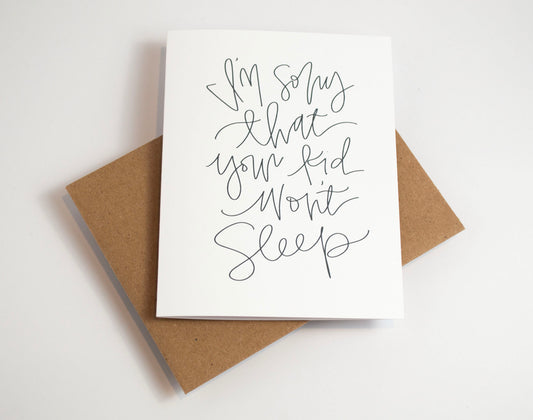 I'm sorry
that
your kid
won't
sleep